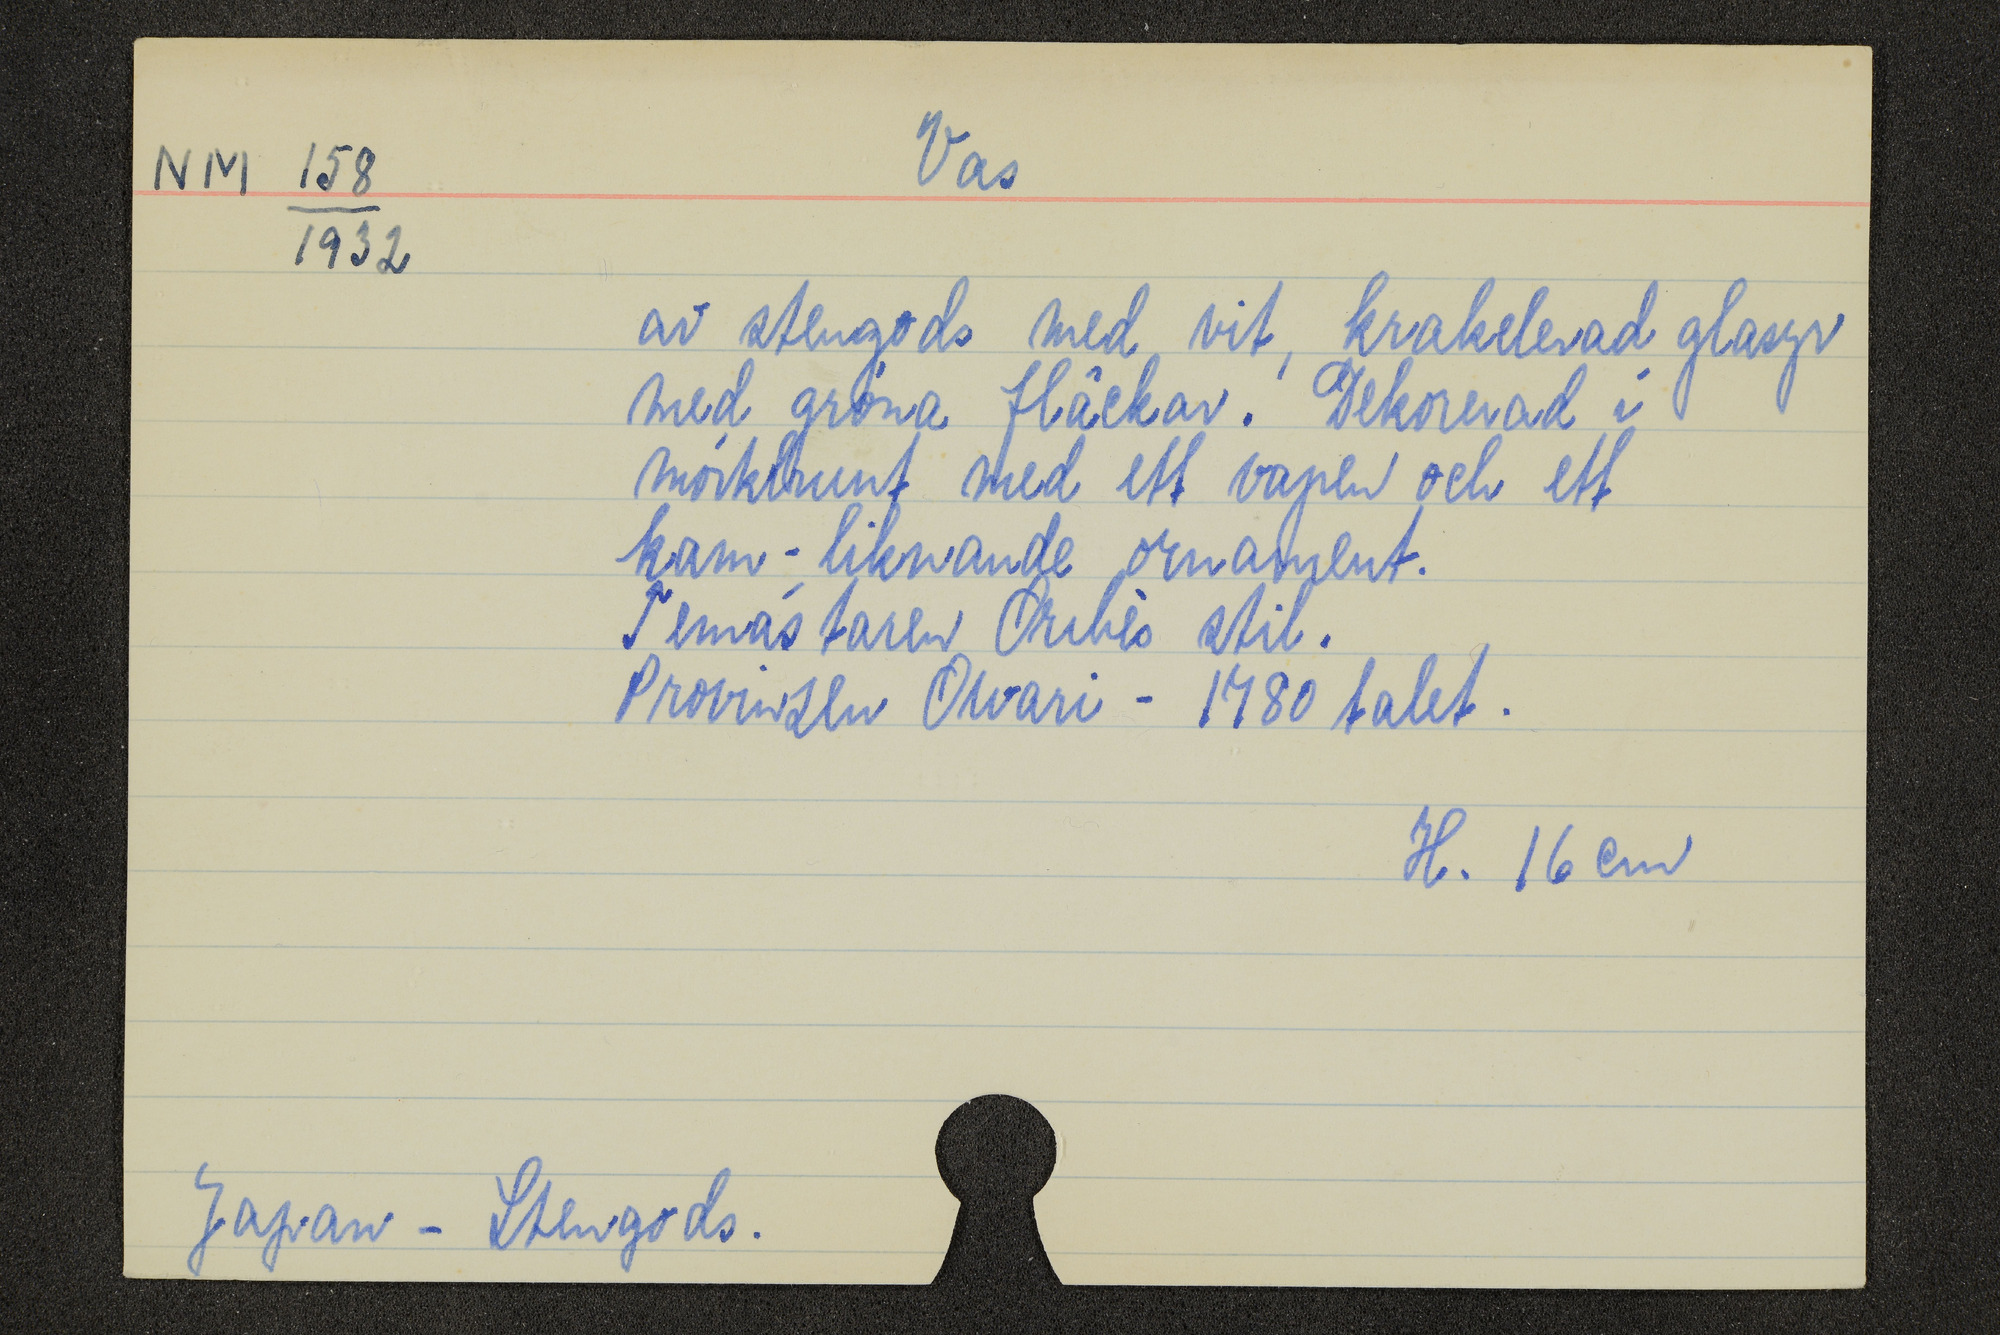 NM 158
1932
Vas
av stengods med vit, krakelerad glasyr
med gröna fläckar. Dekorerad i
mörkbrunt med ett vapen och ett
kam-liknande ornament.
Temästaren Oribès stil.
Provinsen Owari - 1780 talet.
H. 16 cm
Japan - Stengods.